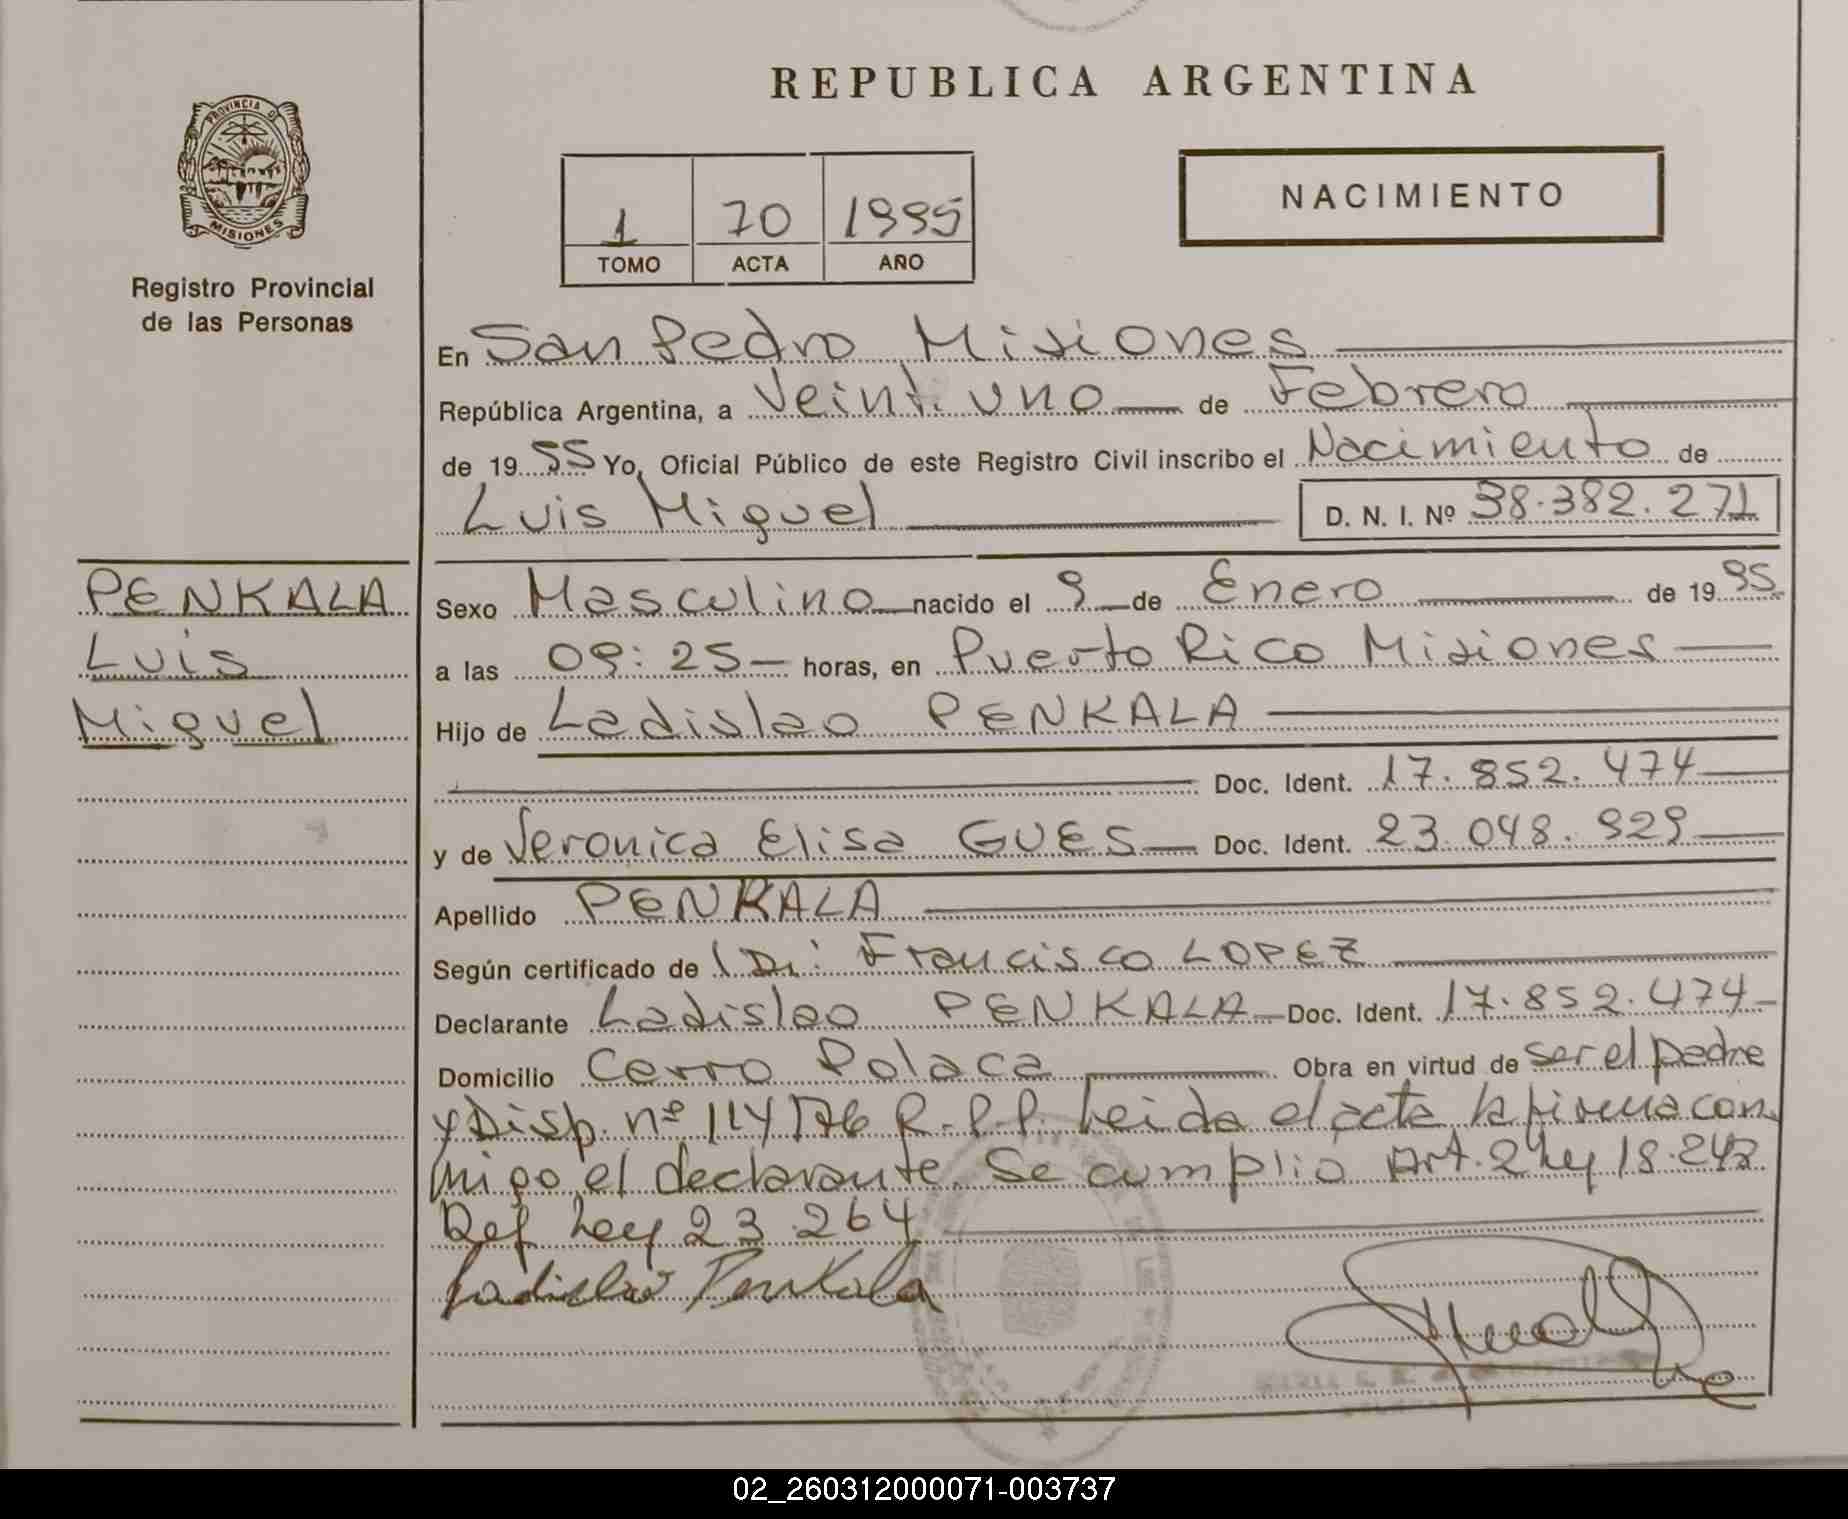 REPUBLICA ARGENTINA
PROVINCIA DE
MISIONES
Registro Provincial
de las Personas
1 70 1995
TOMO ACTA AÑO
NACIMIENTO
En San Pedro Misiones
República Argentina, a Veinti uno de Febrero
de 1995 Yo, Oficial Público de este Registro Civil inscribo el Nacimiento de
Luis Miguel D. N. I. Nº 38.382.271
PENKALA
Luis
Miguel
Sexo Masculino nacido el 9 de Enero de 1995
a las 09:25 horas, en Puerto Rico Misiones
Hijo de Ladislao PENKALA
Doc. Ident. 17.852.474
y de Veronica Elisa GUES Doc. Ident. 23.048.929
Apellido PENKALA
Según certificado de Dr: Francisco LOPEZ
Declarante Ladislao PENKALA Doc. Ident. 17.852.474
Domicilio Cerro Polaca Obra en virtud de ser el padre
y Disp. nº 114/76 R.P.P. Leida el acta la firma con
migo el declarante. Se cumplio Art. 2 Ley 18.248
Ref Ley 23.264
Ladislao Penkala
02_260312000071-003737